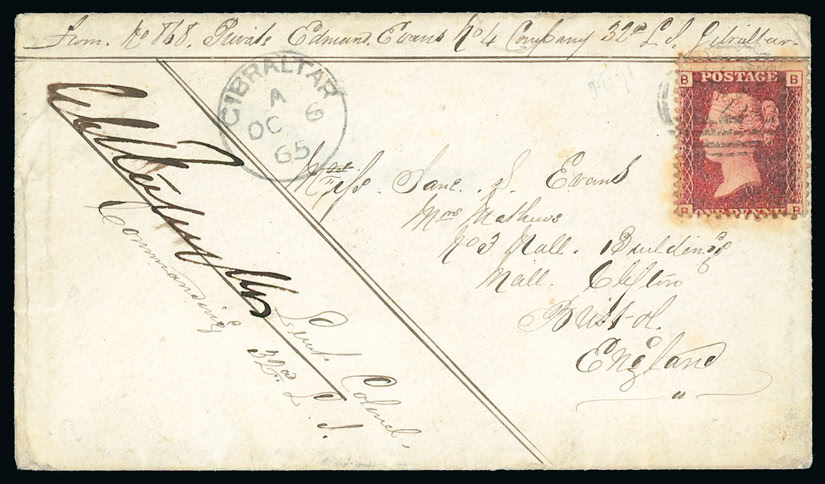 From. No 868. Private Edmund. Evans No 4 Company 32nd L. I. Gibraltar
GIBRALTAR
A
OC 6
65
B POSTAGE B
R R
Miss. Jane. S. Evans
Mrs Mathews
No 3 Mall. Buildings
Mall. Clifton
Bristol.
England
Lieut. Colonel.
Commanding 32nd L. I.